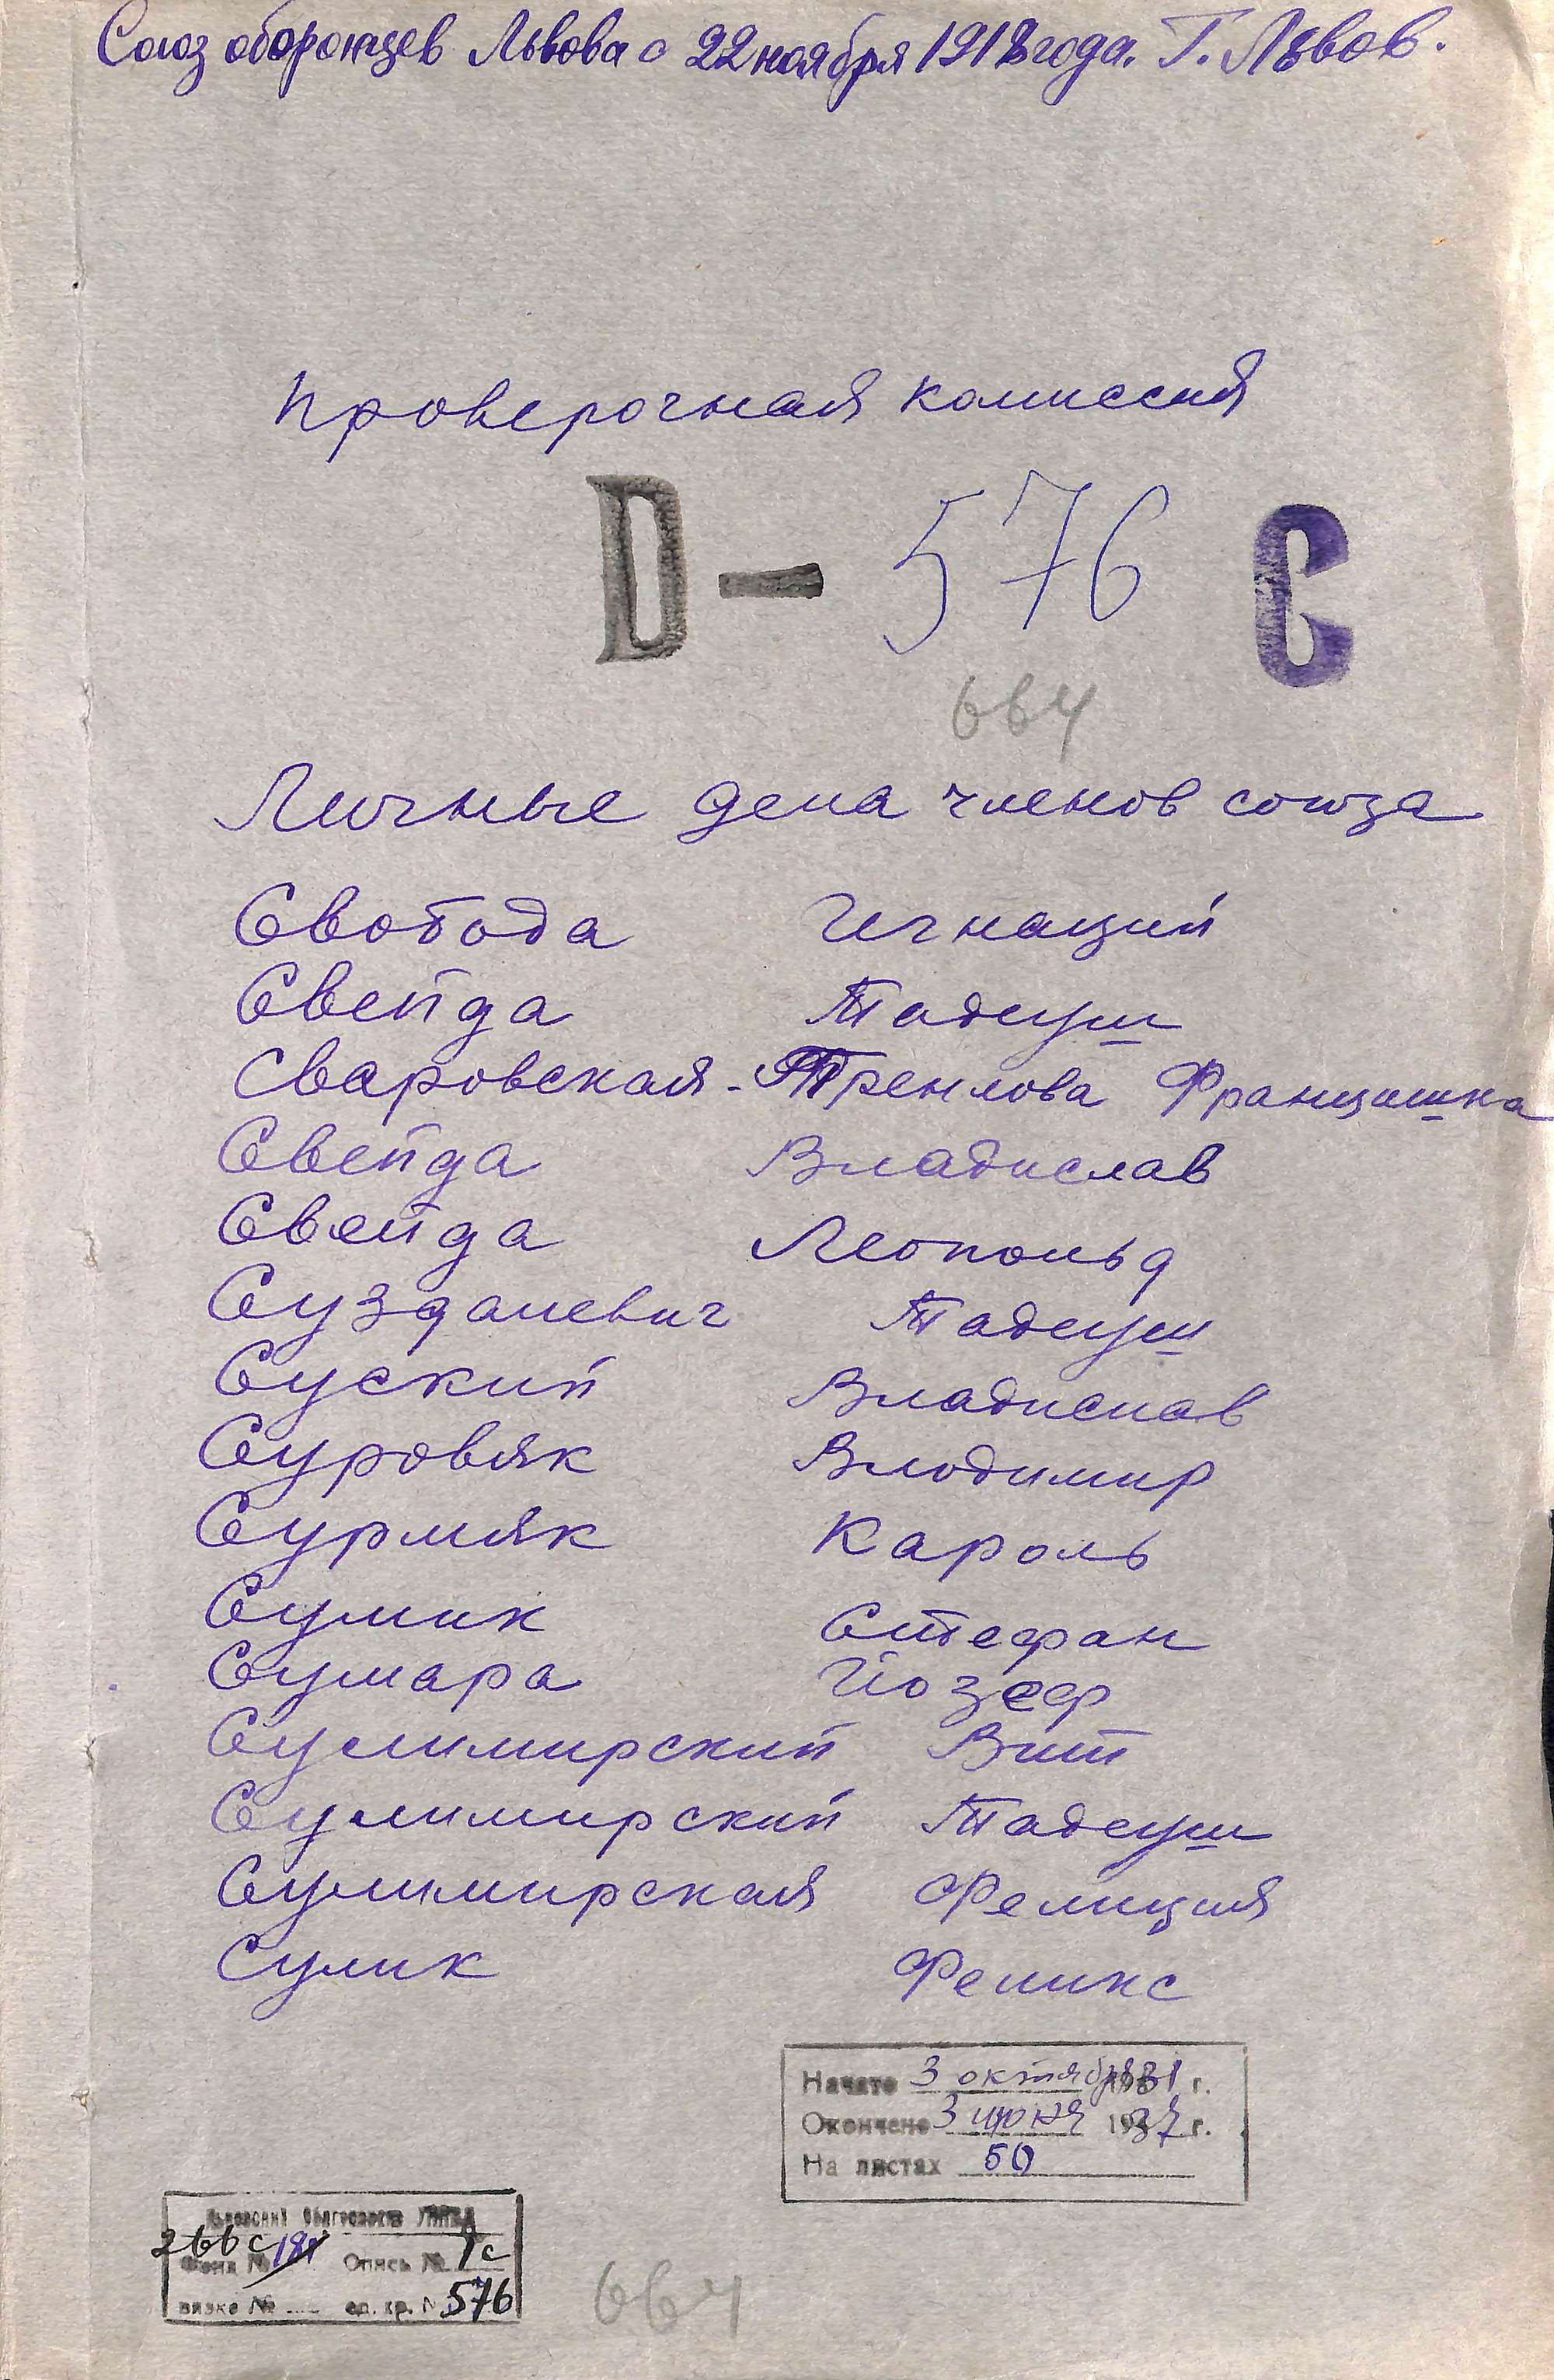 Союз оборонцев Львова с 22 ноября 1918 года. Г. Львов.
Проверочная комиссия
D — 576 C
664
Личные дела членов союза
Свобода Игнаций
Свейда Тадеуш
Сваровская - Тренлова Францишка
Свейда Владислав
Свейда Леопольд
Суздалевич Тадеуш
Суский Владислав
Суровяк Влодимир
Сурмяк Кароль
Сумик Стефан
Сумара Йозеф
Сулимирский Вит
Сулимирский Тадеуш
Сулимирская Фелиция
Сулик Феликс
Начато 3 октября 1931 г.
Окончено 3 июня 1937 г.
На листах 50
Львовский Облгосархив УНКВД
266с Фонд № 181 Опись № 1с
вязке № ед. хр. № 576
664